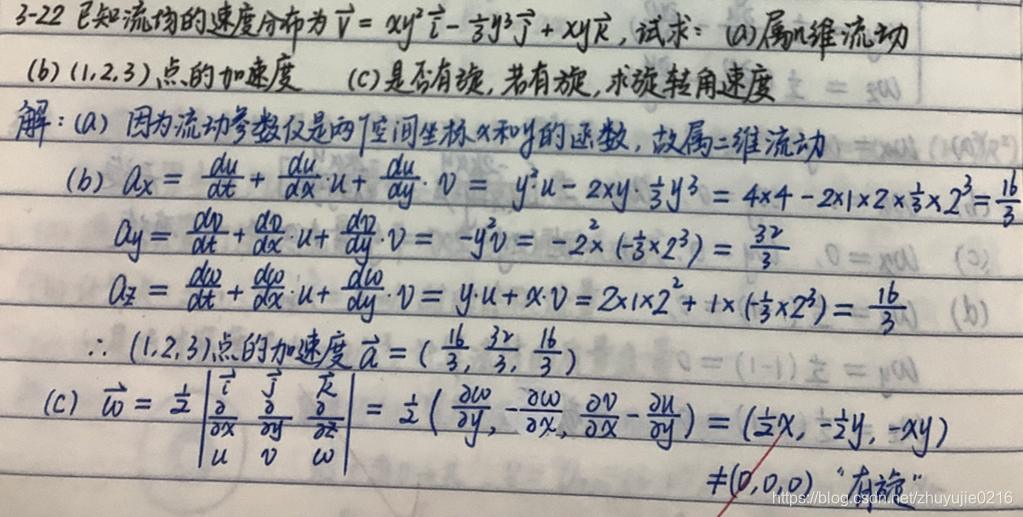 3-22 已知流场的速度分布为 v⃗ = xy²i⃗ - ⅓y³j⃗ + xyk⃗, 试求: (a)属几维流动
(b) (1,2,3)点的加速度 (c)是否有旋, 若有旋, 求旋转角速度
解: (a) 因为流动参数仅是两个空间坐标x和y的函数, 故属二维流动
(b) ax = du/dt + du/dx·u + du/dy·v = y²·u - 2xy·⅓y³ = 4×4 - 2×1×2×⅓×2³ = 16/3
ay = dv/dt + dv/dx·u + dv/dy·v = -y²v = -2²×(-⅓×2³) = 32/3
az = dw/dt + dw/dx·u + dw/dy·v = y·u + x·v = 2×1×2² + 1×(-⅓×2³) = 16/3
∴ (1,2,3)点的加速度 a⃗ = (16/3, 32/3, 16/3)
(c) w⃗ = ½ | i⃗ j⃗ k⃗ ; ∂/∂x ∂/∂y ∂/∂z ; u v w | = ½ (∂w/∂y, -∂w/∂x, ∂v/∂x - ∂u/∂y) = (½x, -½y, -xy)
≠(0,0,0) "有旋"
https://blog.csdn.net/zhuyujie0216